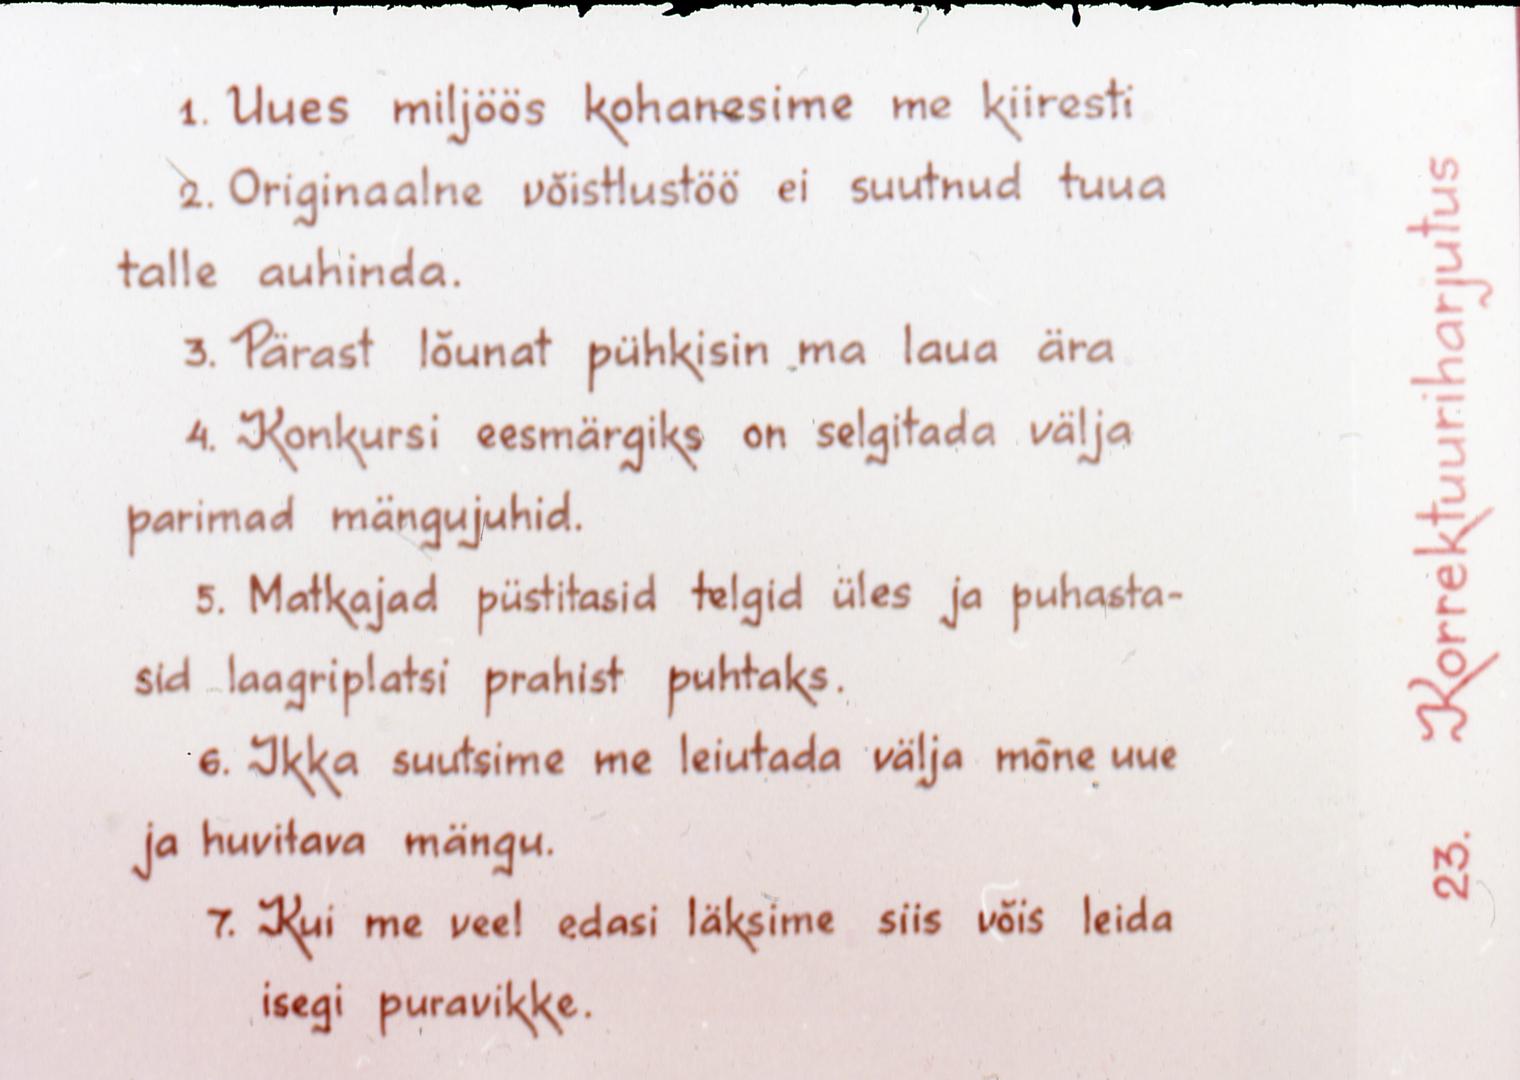 1. Uues miljöös kohanesime me kiiresti
2. Originaalne võistlustöö ei suutnud tuua
talle auhinda.
3. Pärast lõunat pühkisin ma laua ära
4. Konkursi eesmärgiks on selgitada välja
parimad mängujuhid.
5. Matkajad püstitasid telgid üles ja puhasta-
sid laagriplatsi prahist puhtaks.
6. Ikka suutsime me leiutada välja mõne uue
ja huvitava mängu.
7. Kui me veel edasi läksime siis võis leida
isegi puravikke.
23. Korrektuuriharjutus